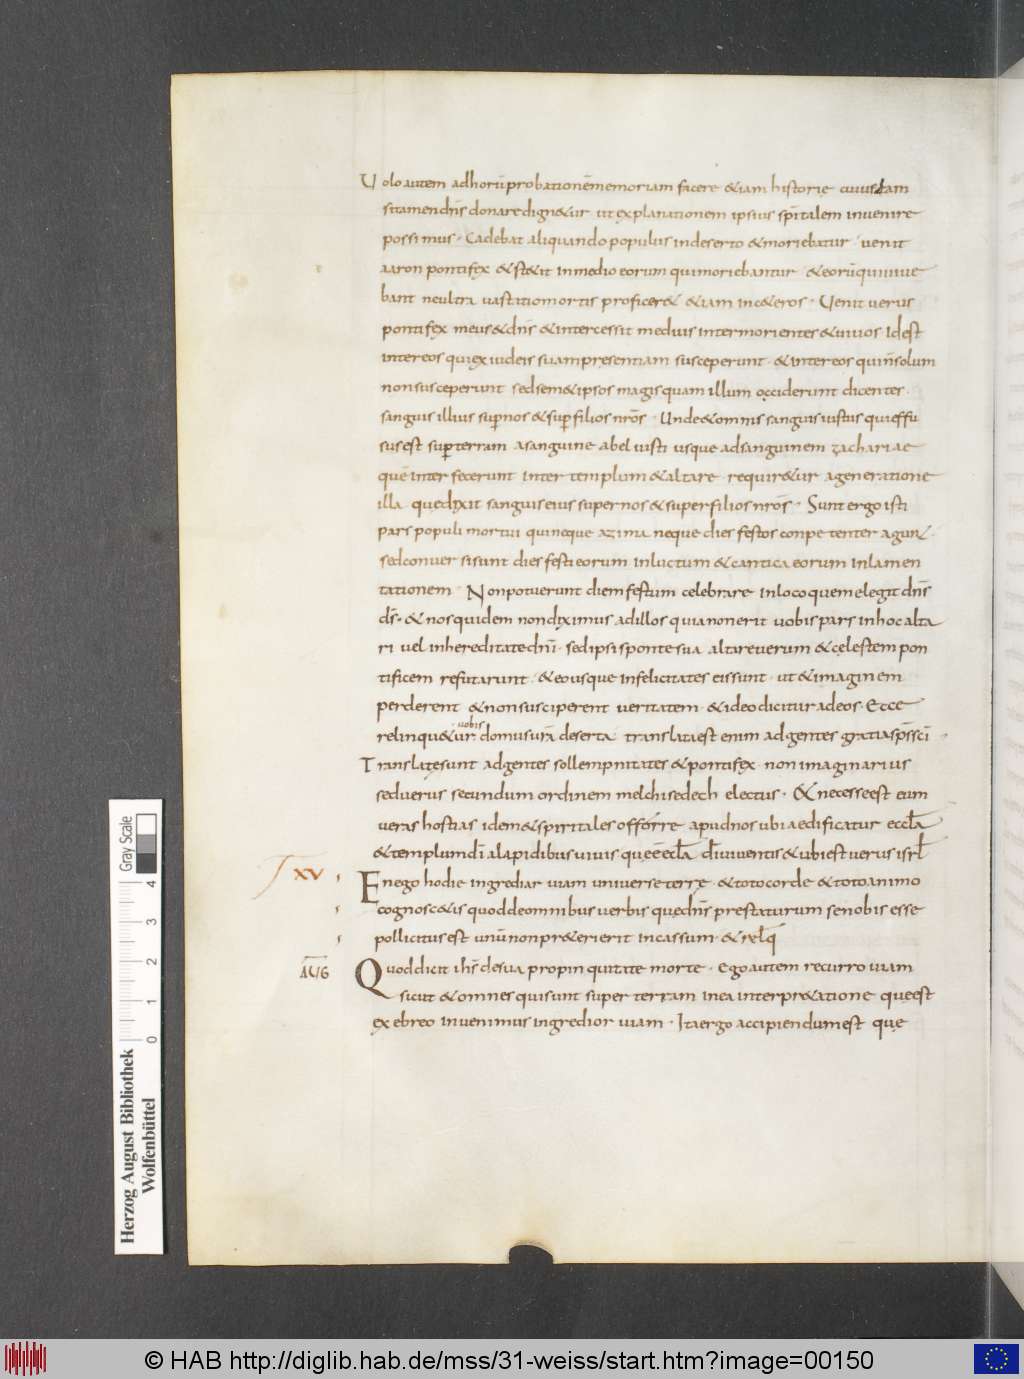 Uolo autem adhorū probationē memoriam facere &iam historię cuiusdam
sitamen dn̄s donare dign&ur ut explanationem ipsius sp̄italem inuenire
possimus · Cadebat aliquando populus indeserto &moriebatur · uenit
aaron pontifex &st&it inmedio eorum qui moriebantur · &eorū qui uiue
bant neultra uastatio mortis proficer& &iam inc&eros · Uenit uerus
pontifex meus &dn̄s &intercessit medius inter morientes &uiuos Idest
inter eos qui ex iudeis suam presentiam susceperunt · &inter eos qui n̄ solum
non susceperunt sed sem&ipsos magis quam illum occiderunt dicentes ·
sanguis illius sup̱ nos &sup̱ filios nr̄os · Unde &omnis sanguis iustus qui effu
sus est sup̱ terram asanguine abel iusti usque adsanguinem zachariae
quē inter fecerunt inter templum &altare · requir&ur ageneratione
illa quę dixit sanguis eius super nos &super filios nr̄os · Sunt ergo isti
pars populi mortui qui neque azima neque dies festos conpe tenter agunt ·
sed conuer si sunt dies festi eorum inluctum &cantica eorum inlamen
tationem · Non potuerunt diem festum celebrare inloco quem elegit dn̄s
ds̄ · &nos quidem non diximus adillos quia non erit uobis pars in hoc alta
ri uel in hereditate dn̄i · sed ipsi sponte sua altare uerum &celestem pon
tificem refutarunt · &eousque infelicitates eis sunt · ut &imaginem
perderent &non susciperent ueritatem · &ideo dicitur adeos · Ecce
relinqu&ur uobis domus ur̄a deserta translata est enim adgentes gratia sp̄s sc̄i ·
Translatę sunt adgentes sollempnitates &pontifex · non imaginarius
sed uerus secundum ordinem melchisedech electus · &necesse est eum
ueras hostias idem &spiritales offerre apud nos ubi aedificatur eccl̄a
&templum dī alapidibus uiuis quę ē ecl̄a dī uiuentis &ubi est uerus isrl̄
XV
En ego hodie ingrediar uiam uniuersę terrę · &toto corde &toto animo
cognosc&is quod de omnibus uerbis quę dn̄s prestaturum se nobis esse
pollicitus est unū non pr&erierit incassum · &relq̄
AUG
Quod dicit ihs̄ de sua propinquitate morte · Ego autem recurro uiam
sicut &omnes qui sunt super terram inea interpr&atione quę est
ex ebreo inuenimus ingredior uiam · Ita ergo accipiendum est quę
Gray Scale
4
3
2
1
0
Herzog August Bibliothek
Wolfenbüttel
© HAB http://diglib.hab.de/mss/31-weiss/start.htm?image=00150